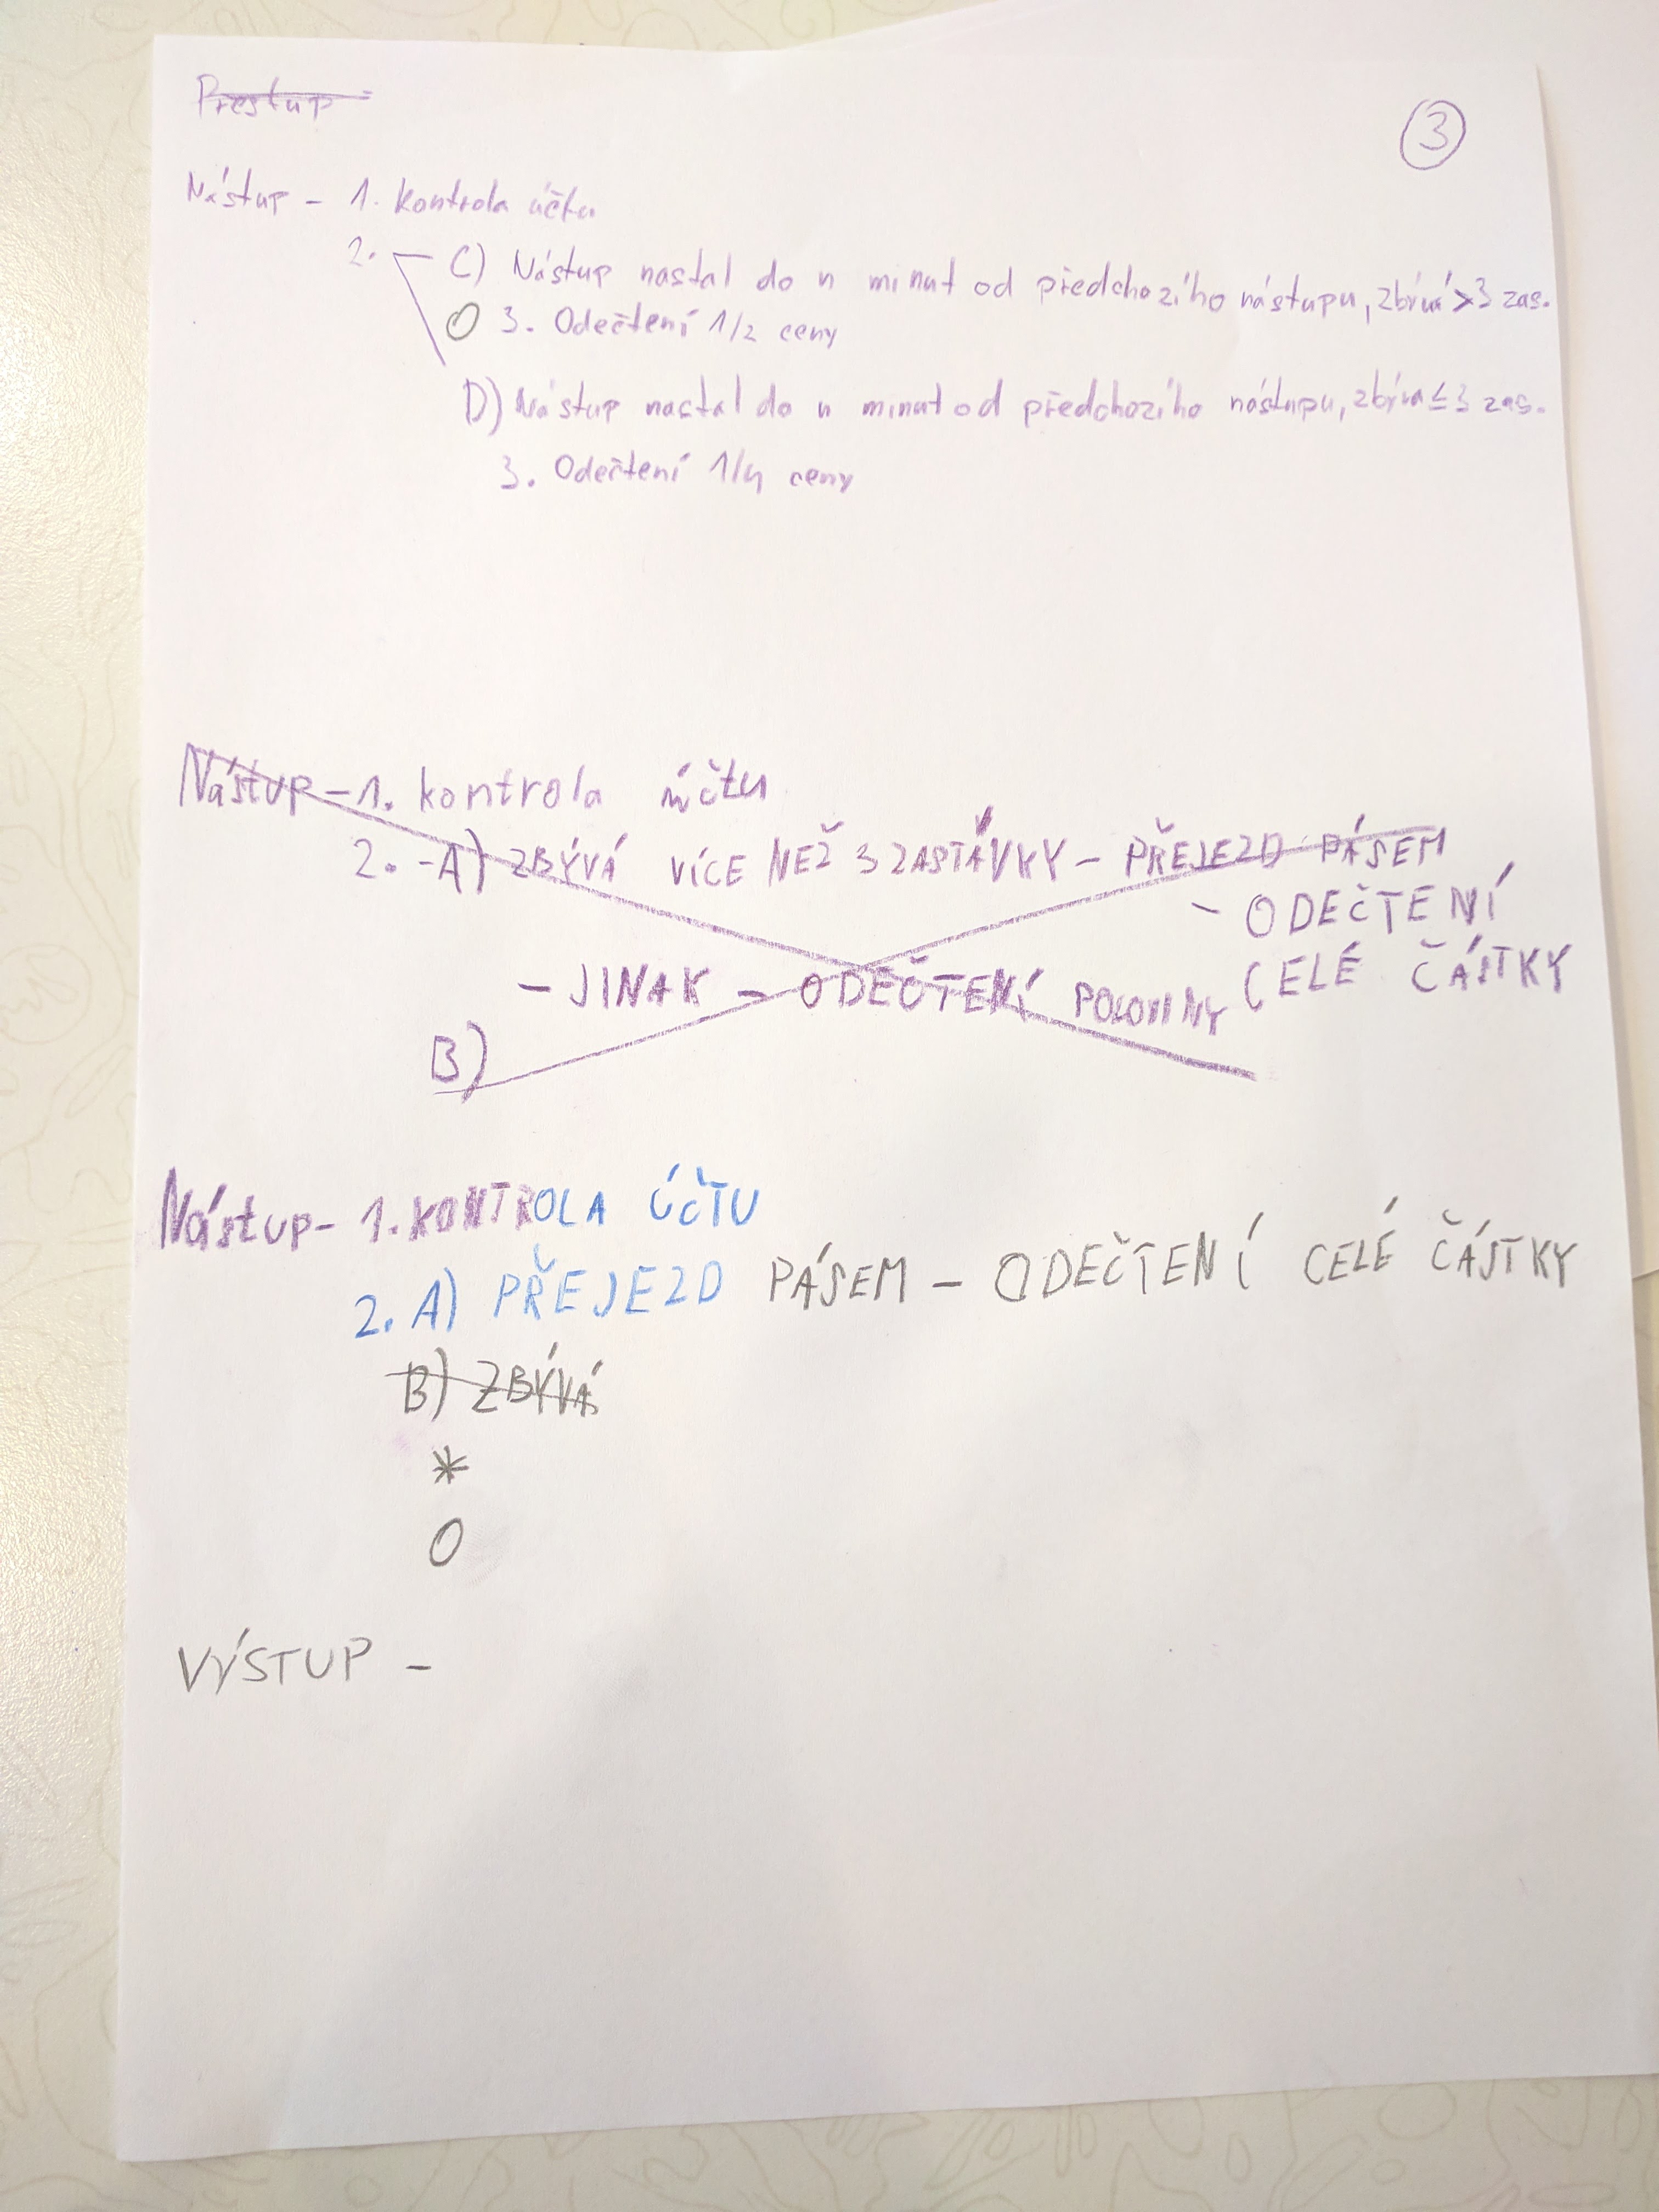 Přestup -
3
Nástup - 1. kontrola účtu
2. C) Nástup nastal do n minut od předchozího nástupu, zbývá > 3 zas.
O 3. Odečtení 1/2 ceny
D) Nástup nastal do n minut od předchozího nástupu, zbývá ≤ 3 zas.
3. Odečtení 1/4 ceny
Nástup - 1. kontrola účtu
2. - A) ZBÝVÁ VÍCE NEŽ 3 ZASTÁVKY - PŘEJEZD PÁSEM
- ODEČTENÍ
CELÉ ČÁSTKY
- JINAK - ODEČTENÍ POLOVINY
B)
Nástup - 1. KONTROLA ÚČTU
2. A) PŘEJEZD PÁSEM - ODEČTENÍ CELÉ ČÁSTKY
B) ZBÝVÁ
*
O
VÝSTUP -